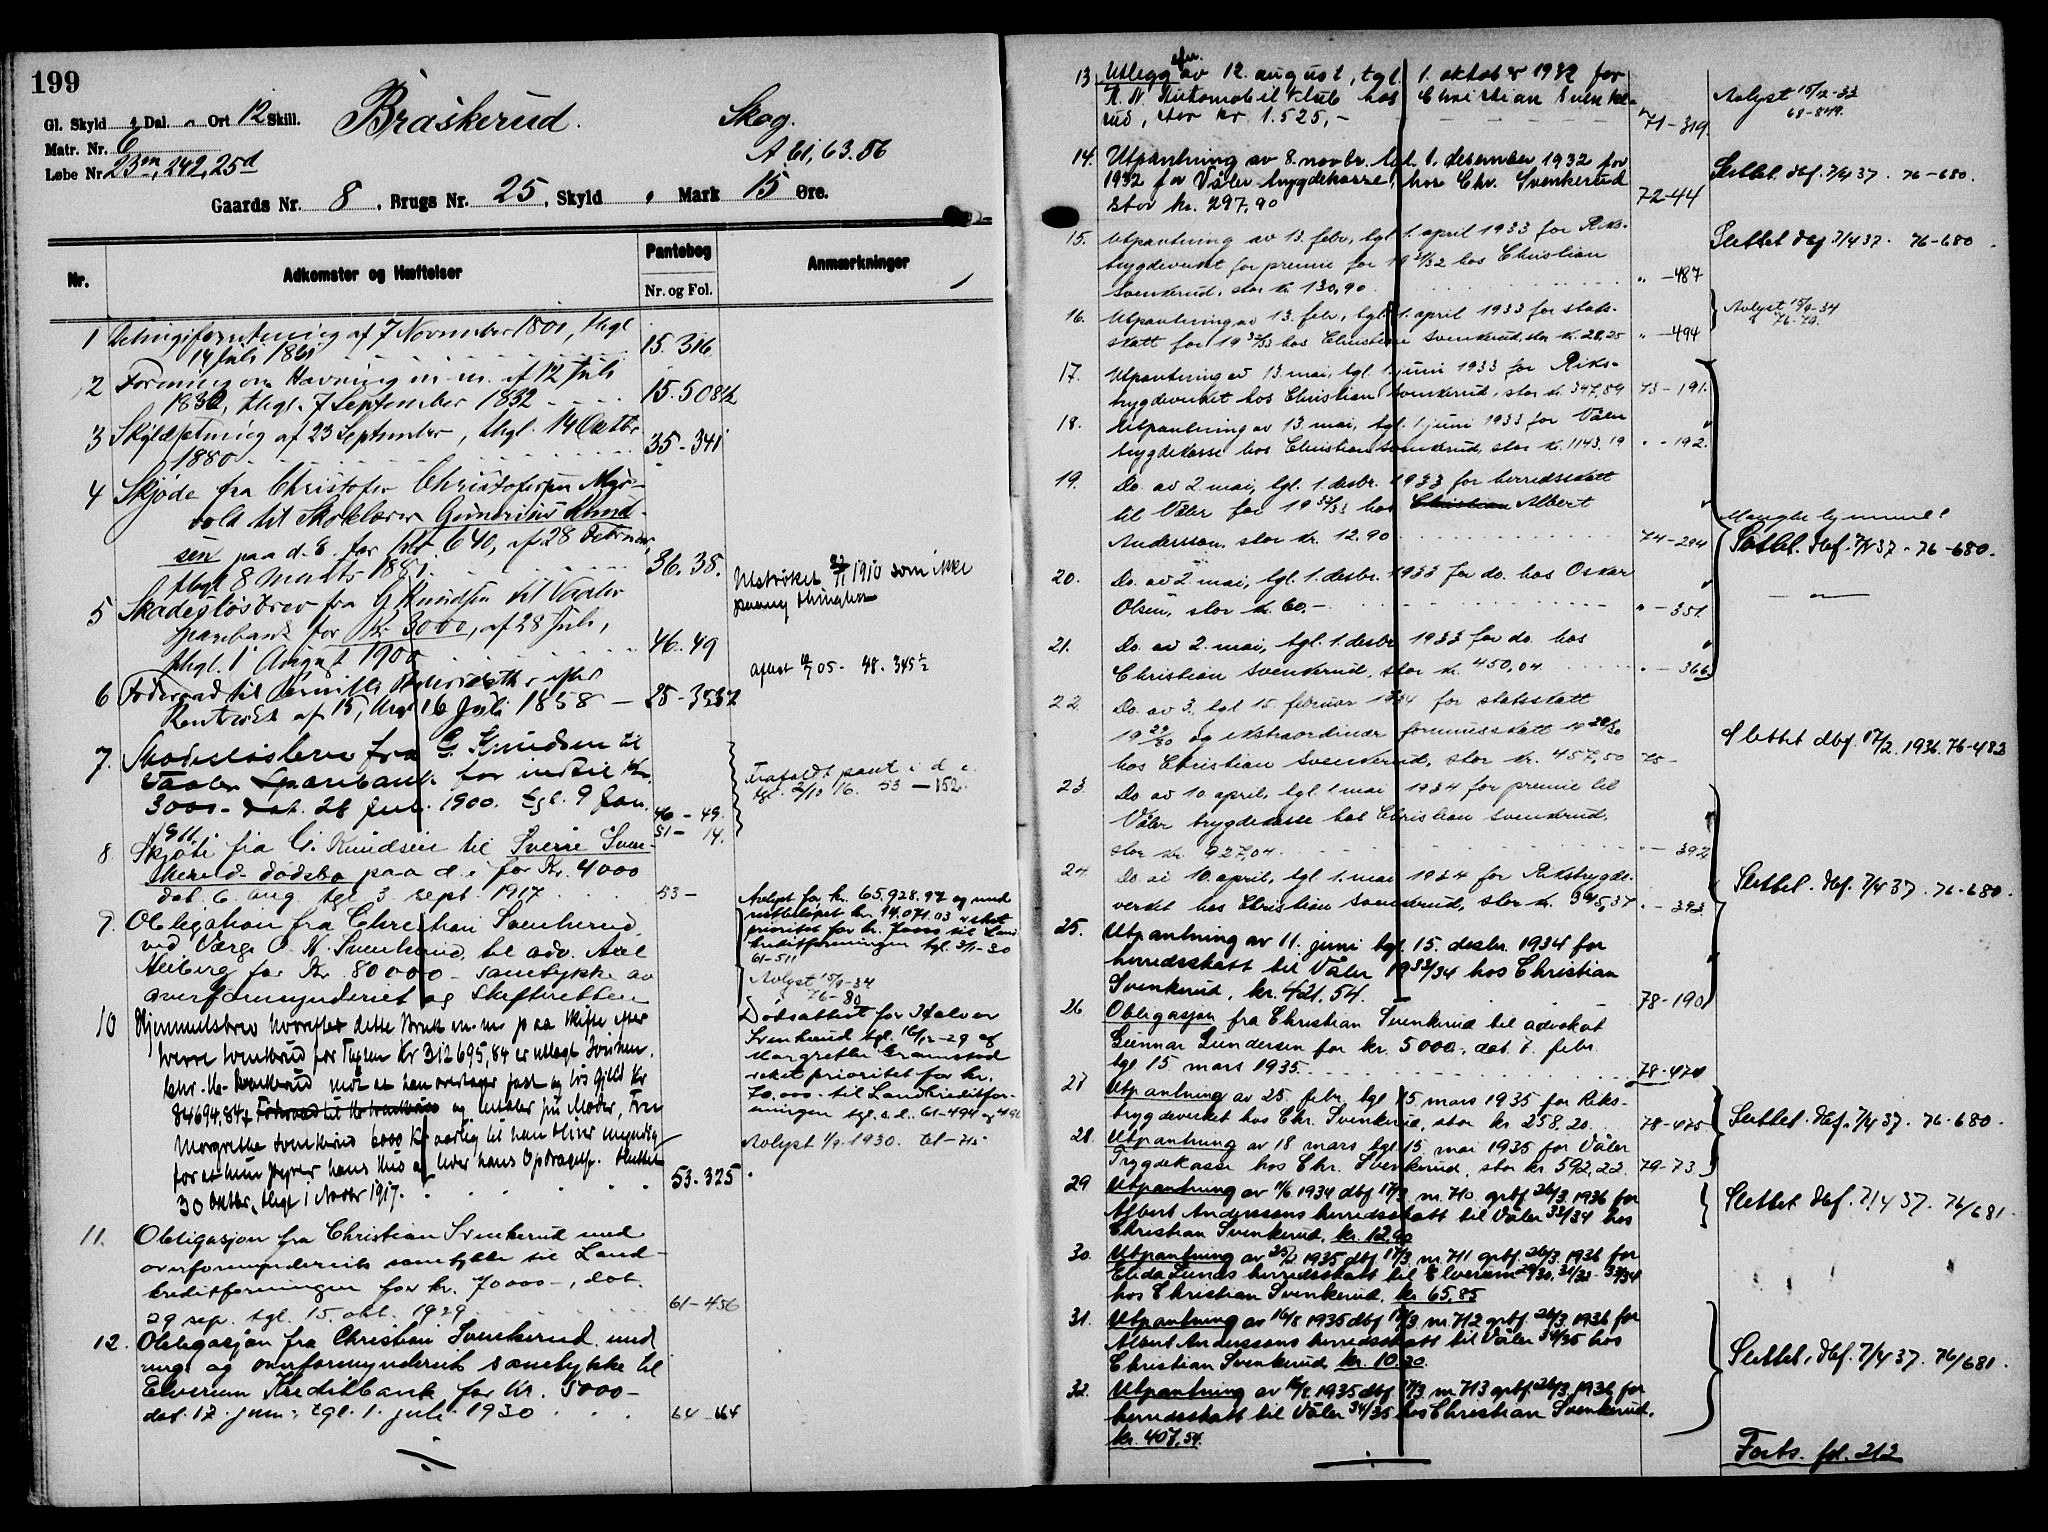 199
Gl. Skyld " Dal. " Ort 12 Skill.
Braskerud.
Skog.
Matr. Nr. 6
A. 61, 63.56
Løbe Nr. 23m, 242, 25d
Gaards Nr. 8, Brugs Nr. 25, Skyld " Mark 15 Øre.
Nr.
Adkomster og Hæftelser
Pantebog
Nr. og Fol.
Anmærkninger
1 af 7 November 1801, thgl
14 Juli 1861 15. 316
2 Forening om Havning m.m. af 12 Juli
1832, thgl. 7 September 1832 15. 508 1/2
3 Skyldsætning af 23 September, thgl. 14 Octbr
1880 35-341
4 Skjøde fra Christofer Christofersen
vold til Skolelærer Gunerius Knud-
sen paa d. E. for 640, af 28 Februar,
thgl 8 Marts 1881. 36. 35.
5 Skadesløsbrev fra G Knudsen til Vaaler
Sparebank for Kr 3000, af 28 Juli,
thgl. 1 August 1900 46. 49
Utstrøket 1910 som ikke
6 Foderaad til efter
af 15, thgl 16 Juli 1858 25-
Aflæst 05- 48. 345 1/2
7. Skadesløsbrev fra G. Knudsen til
Vaaler Sparebank for indtil Kr.
3000- dat. 28 Juli 1900. tgl. 9 Jan.
1911. 46-49. 51-14.
Frafaldt pant i d. e.
53-152.
8. Skjøte fra G. Knudsen til Sverre Sven-
kerud dødsbo paa d. e. for Kr. 4000
dat. 6 aug. tgl 3. sept. 1917 53-
9. Obligation fra Christian Svenkerud
ved Værge O. N. Svenkerud, til adv. Axel
Heiberg for Kr. 80000- samtykke av
overformynderiet og skifteretten
Avlyst for kr. 65.928.97 og med
restbeløpet kr. 14.071.03 veket
prioritet for kr. 70000 til Land-
kreditforeningen tgl. 3/1-30
61-511
Avlyst 15/9-34
76-80
10 Hjemmelsbrev hvorefter dette Bruk m.m. paa skifte efter
Sverre Svenkerud for Taxten Kr 312695,84 er utlagt Sønnen,
Chr. M. Svenkerud mot at han overtager fast og løs Gjeld Kr
84694.84, og betaler sin Moder, Fru
Margrethe Svenkerud 6000 Kr aarlig til han bliver myndig
for at hun styrer hans Hus og leder hans Opdragelse. Skiftet
30 Oktbr, thgl 1 Novbr 1917. 53. 325
Dødsattest for Halvor
Svenkerud tgl. 16/12-29 og
Margrethe Gramstad
veket prioritet for kr.
70.000- til Landkreditfor-
eningen tgl. s.d. 61-494 og 496
Avlyst 1/9 1930.
11. Obligasjon fra Christian Svenkerud med
overformynderiets samtykke til Land-
kreditforeningen for kr. 70000-, dat.
29 sep. tgl. 15. okt. 1929 61-456
12. Obligasjon fra Christian Svenkerud med
verge og overformynderiets samtykke til
Elverum Kreditbank for Kr. 5000-
dat. 17. juni, tgl. 1. juli 1930 64-64
13 Utlegg av 12. august, tgl 1. oktober 1932 for
K. N. Automobilklub hos Christian Svenke-
rud, stor kr. 1.525,- 71-319
Avlyst 15/2-33
68-849.
14. Utpantning av 8. novbr. tgl. 1. desember 1932 for
1932 for Våler trygdekasse, hos Chr. Svenkerud
stor kr. 297,90 72-44
Slettet dbf. 7/4 37. 76-680.
15. Utpantning av 13. febr, tgl 1. april 1933 for Riks-
trygdeverket for premie for 1931/32 hos Christian
Svenkerud, stor kr. 130,90. " -487
Slettet dbf 7/4 37. 76-680.
16. Utpantning av 13. febr, tgl. 1. april 1933 for stats-
skatt for 1932/33 hos Christian Svenkerud, stor kr. 28,25 " -494
Avlyst 15/9-34
76-79.
17. Utpantning av 13. mai, tgl. 1. juni 1933 for Riks-
trygdeverket hos Christian Svenkerud, stor kr. 347,89 73-191.
18. Utpantning av 13. mai, tgl. 1. juni 1933 for Våler
trygdekasse hos Christian Svenkerud, stor kr. 1143.19 " -192.
19. Do. av 2. mai, tgl. 1. desbr. 1933 for herredsskatt
til Våler for 1932/33 hos Christian Albert
Andersson, stor kr. 12.90 74-294
Mangler hjemmel!
Slettet. dbf. 7/4 37. 76-680.
20. Do. av 2. mai, tgl. 1. desbr. 1933 for do. hos Oskar
Olsen, stor kr. 60.- " -351.
21. Do. av 2. mai, tgl. 1. desbr 1933 for do. hos
Christian Svenkerud, stor kr. 450,04 " -366
22. Do. av 3., tgl 15. februar 1934 for statsskatt
1929/30 og ekstraordinær formuesskatt 1929/30
hos Christian Svenkerud, stor kr. 457,50 75-
Slettet dbf. 17/2. 1936. 76-483
23. Do av 10. april, tgl 1. mai 1934 for premie til
Våler trygdekasse hos Christian Svenkerud,
stor kr. 927,04. " -392
24. Do av 10. april, tgl. 1. mai 1934 for Rikstrygde-
verket hos Christian Svenkerud, stor kr. 345,37 " -393
Slettet. dbf. 7/4 37. 76-680.
25. Utpantning av 11. juni tgl. 15. desbr. 1934 for
herredsskatt til Våler 1933/34 hos Christian
Svenkerud, kr. 421.54. 78-190
26 Obligasjon fra Christian Svenkerud til advokat
Gunnar Gundersen for kr. 5000-, dat. 7. febr.
tgl 15 mars 1935. 78-474
27 Utpantning av 25. febr. tgl 15 mars 1935 for Riks-
trygdeverket hos Chr. Svenkerud, stor kr 258,20. 78-475
28. Utpantning av 18 mars tgl. 15. mai 1935 for Våler
Trygdekasse hos Chr. Svenkerud, stor kr. 592,22. 79-73
Slettet. dbf. 7/4 37. 76-680.
29 Utpantning av 11/6 1934 dbf 17/3 nr. 710 grbf. 26/3. 1936 for
Albert Anderssons herredsskatt til Våler 33/34 hos
Christian Svenkerud, kr. 12,90
Slettet dbf. 7/4 37. 76/681.
30. Utpantning av 25/1 1935 dbf 17/3 nr. 711 grbf. 26/3. 1936 for
Elida Lunds herredsskatt til Elverum 29/30, 31/32- 33/34
hos Christian Svenkerud, kr. 65,85
31. Utpantning av 16/8 1935 dbf 17/3 nr. 712 grbf. 26/3. 1936 for
Albert Anderssons herredsskatt til Våler 34/35 hos
Christian Svenkerud kr. 10.20.
Slettet. dbf. 7/4 37. 76/681.
32. Utpantning av 16/8. 1935 dbf 17/3 nr. 713 grbf. 26/3. 1936 for
herredsskatt til Våler 34/35 hos Christian Svenkerud,
kr. 407,54.
Forts. fol. 212